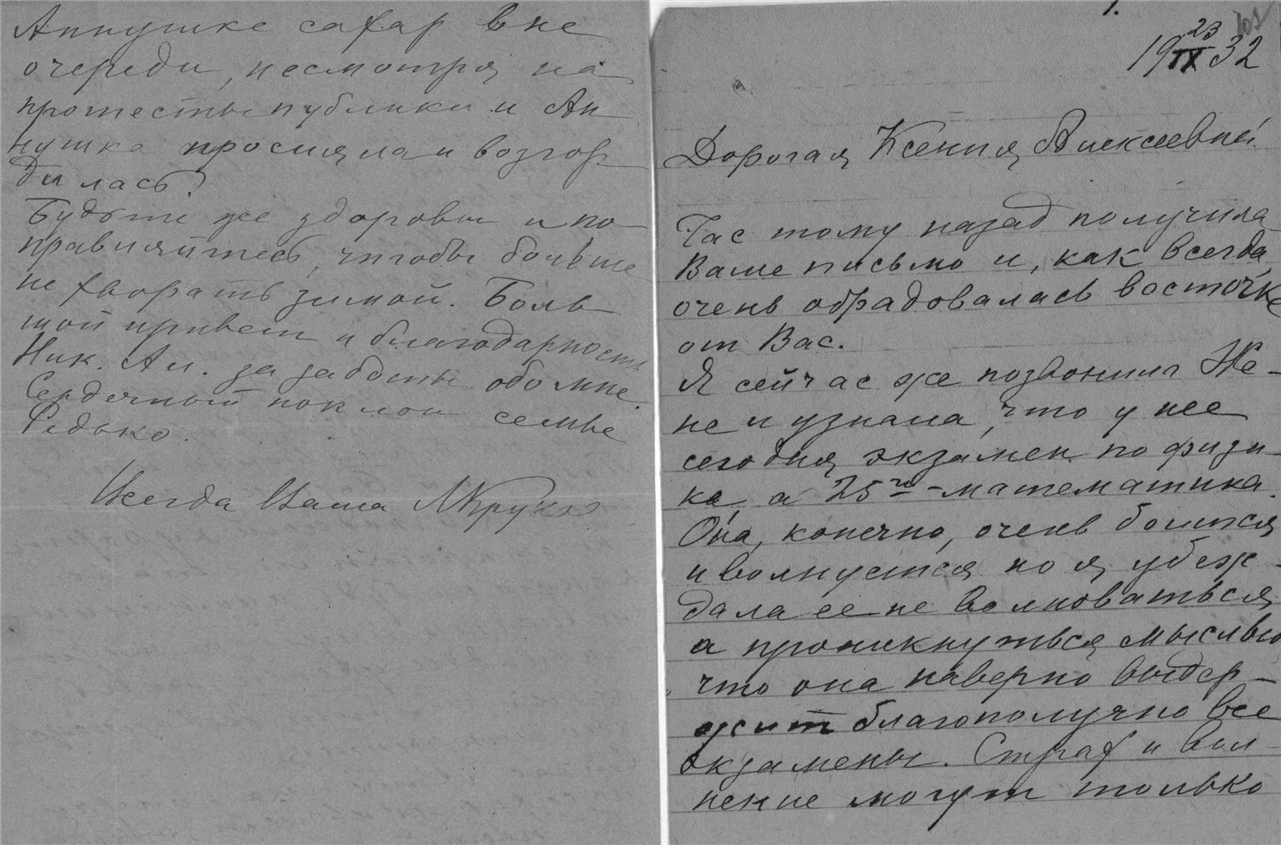 Аннушке сахар вне
очереди, несмотря на
протесты публики и Ан
нушка просияла и возгор
дилась.
Будьте же здоровы и по
правляйтесь, чтобы больше
не хворать зимой. Боль
шой привет и благодарность
Ник. Ал. за заботы обо мне.
Сердечный поклон семье
Редько.
Всегда Ваша
1.
101
19 23/IX 32
Дорогая Ксения Алексеевна
Час тому назад получила
Ваше письмо и, как всегда
очень обрадовалась весточке
от Вас.
Я сейчас же позвонила Же-
не и узнала, что у нее
сегодня экзамен по физи-
ке, а 25го - математика.
Она, конечно, очень боится
и волнуется но я убеж-
дала ее не волноваться,
а проникнуться мыслью
что она наверно выдер-
жит благополучно все
экзамены. Страх и вол-
нение могут только